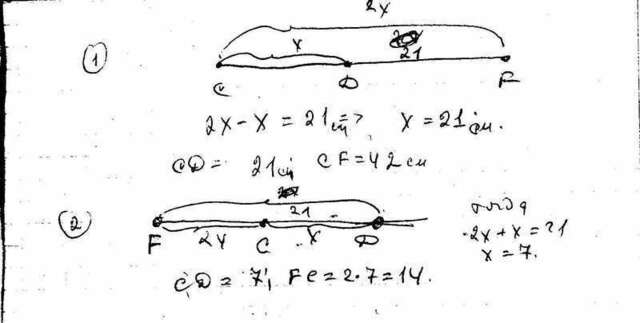 2x
①
x
21
C D F
2x - x = 21 см => x = 21 см.
CD = 21 см CF = 42 см
②
21
F 2x C x D
тогда
2x + x = 21
x = 7.
CD = 7, FC = 2·7 = 14.